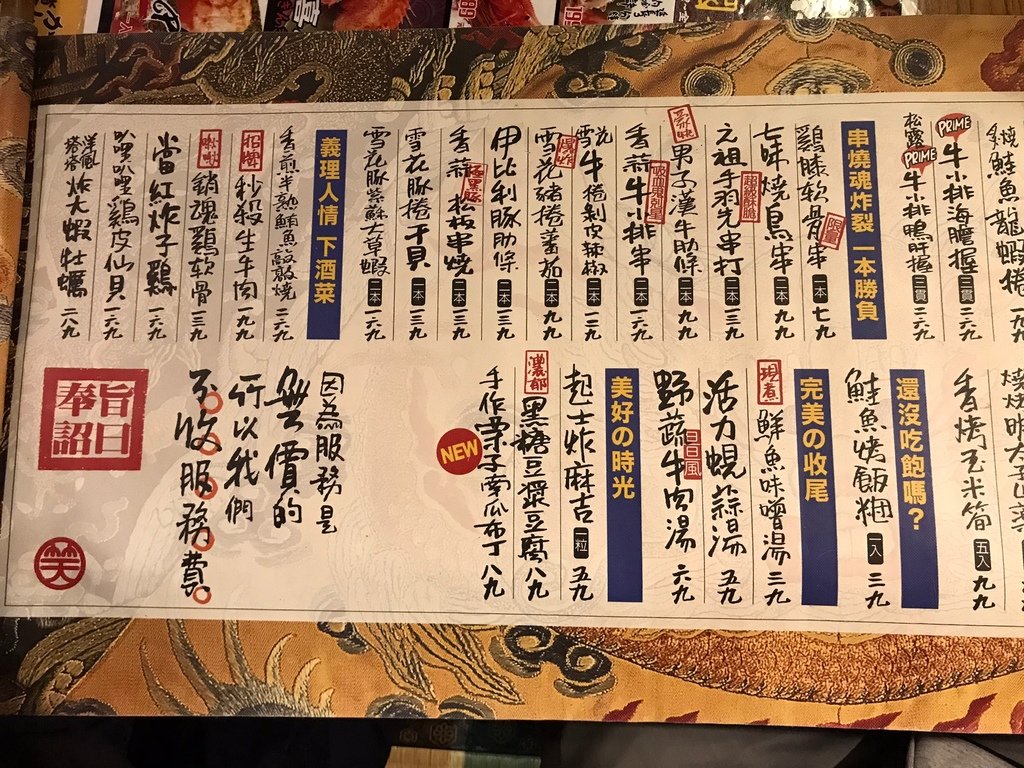 鮭魚龍蝦捲 一九九
PRIME
牛小排海膽握 三貫 二六九
松露 PRIME 牛小排鴨肝握 三貫 二六九
串燒魂炸裂 一本勝負
雞膝軟骨串 限量 一本 七九
七味燒鳥串 二本 九九
元祖手羽先串打 二本 一三九
男子漢牛肋條 二本 九九
香蒜牛小排串 吸血鬼剋星 二本 一三九
雪花牛捲剝皮辣椒 二本 一三九
雪花豬捲蕃茄 爆炸 二本 九九
伊比利豚肋條 二本 一三九
香蒜松板串燒 極黑豚 二本 一三九
雪花豚捲干貝 二本 一六九
雪花豚紫蘇大草蝦 二本 一六九
義理人情 下酒菜
香煎半熟鮮魚敲敲燒 二六九
招牌 秒殺生牛肉 一九九
銷魂雞软骨 一三九
當紅炸子雞 一六九
叭哩雞皮仙貝 一六九
洋風塔塔 炸大蝦牡蠣 二八九
香烤玉米筍 五入 九九
還沒吃飽嗎？
鮭魚烤飯糰 一入 三九
完美の收尾
現煮 鮮魚味噌湯 三九
活力蜆蒜湯 五九
野蔬牛肉湯 日日風 六九
美好の時光
起士炸麻吉 一粒 五九
濃郁 黑糖豆漿豆腐 八九
NEW
手作栗子南瓜布丁 八九
因為服務是
無價的
所以我們
不收服務費。
旨日
奉詔
笑